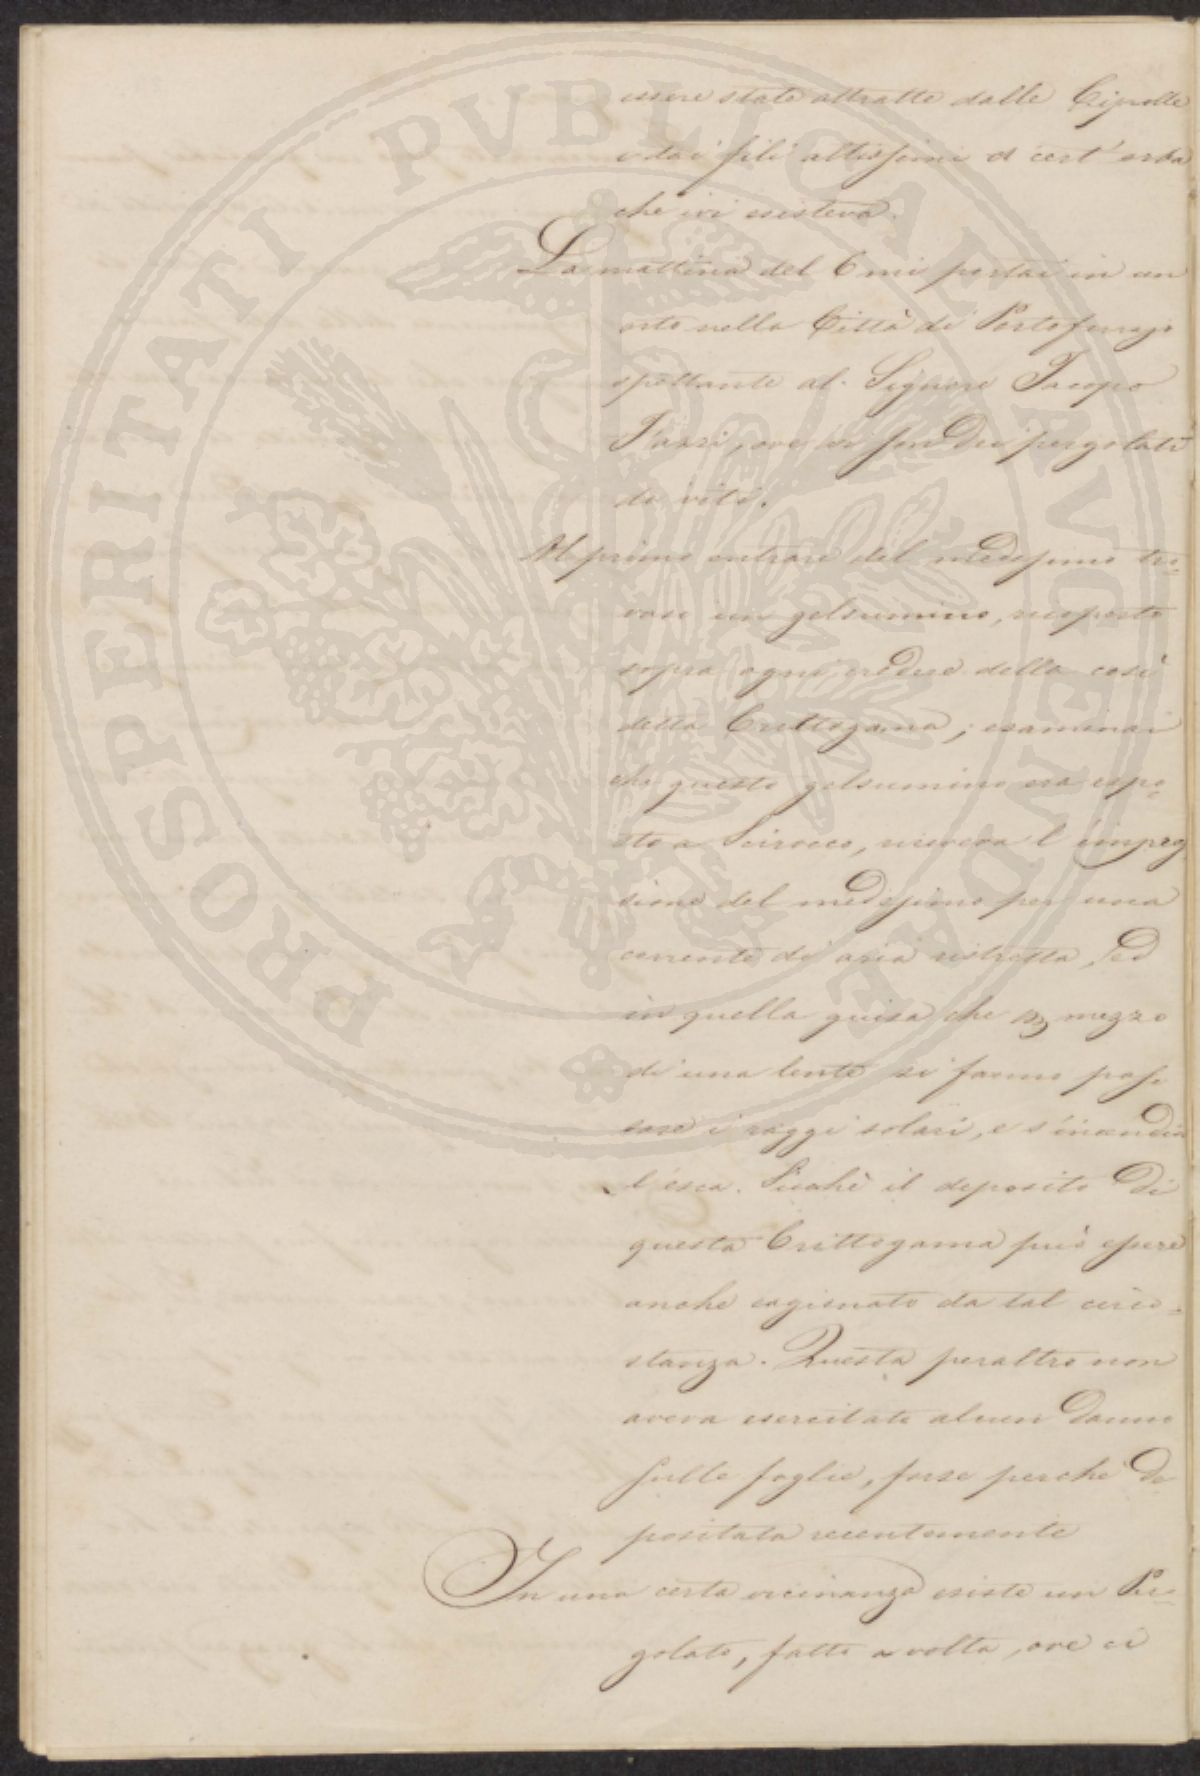 essere state attratte dalle Cipolle
o dai fili altissimi d cert' erba
che ivi esisteva.
La mattina del 6 mi portai in un
orto nella Città di Portoferrajo
spettante al Signore Jacopo
ove vi son dei pergolati
da viti.
Al primo entrare del medesimo tro-
vasi un gelsumino, ricoperto
sopra ogni credere della così
detta Crittogama; esaminai
che questo gelsumino era espo-
sto a Scirocco, riceveva l'impres
sione del medesimo per una
corrente di aria ristretta, ed
in quella guisa che per mezzo
di una lente si fanno pas
sare i raggi solari, e s'incendia
l'esca. Sicchè il deposito di
questa Crittogama può essere
anche cagionato da tal circo-
stanza. Questa peraltro non
aveva esercitato alcun danno
sulle foglie, forse perchè de
positata recentemente
In una certa vicinanza esiste un Per-
golato, fatto a volta, ove ci
PROSPERITATI PVBLICAE AVGENDAE